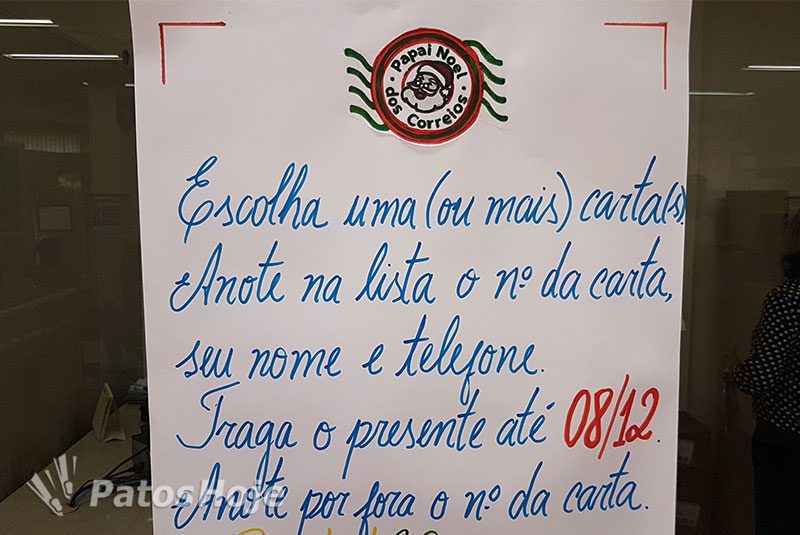 Papai Noel
dos Correios
Escolha uma (ou mais) carta(s).
Anote na lista o nº da carta,
seu nome e telefone.
Traga o presente até 08/12.
Anote por fora o nº da carta.
PatosHoje